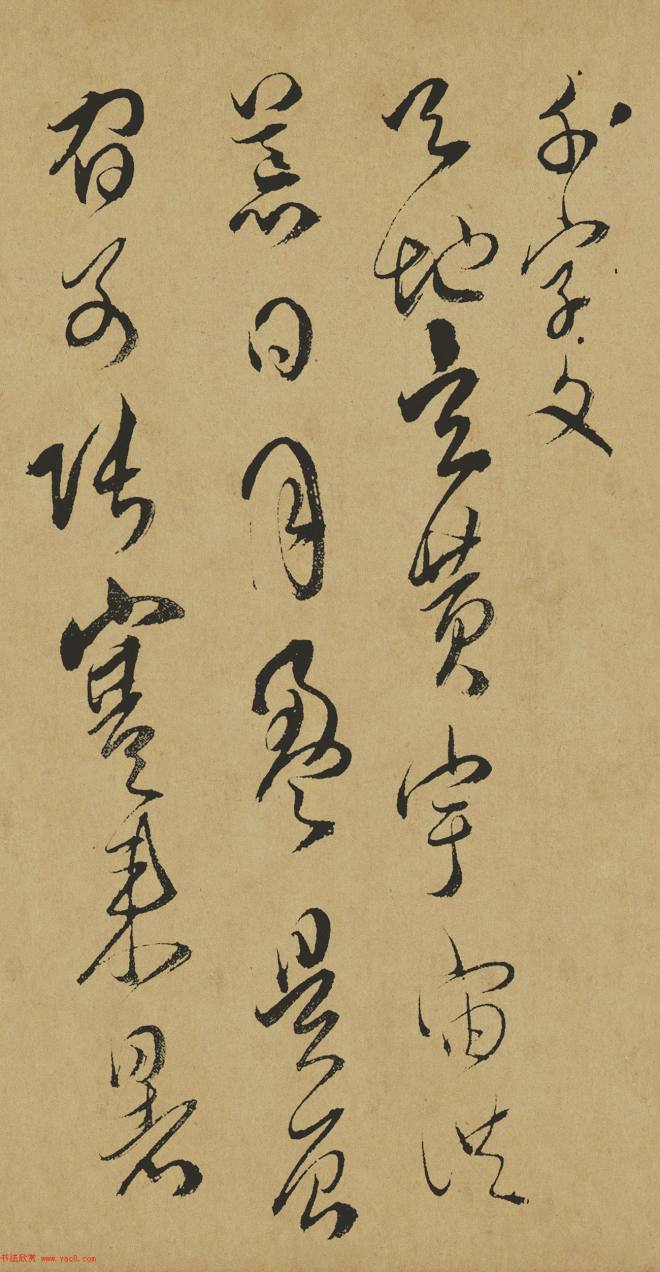 千字文
天地玄黄宇宙洪
荒日月盈昃辰
宿列张寒来暑
书法欣赏 www.yac8.com